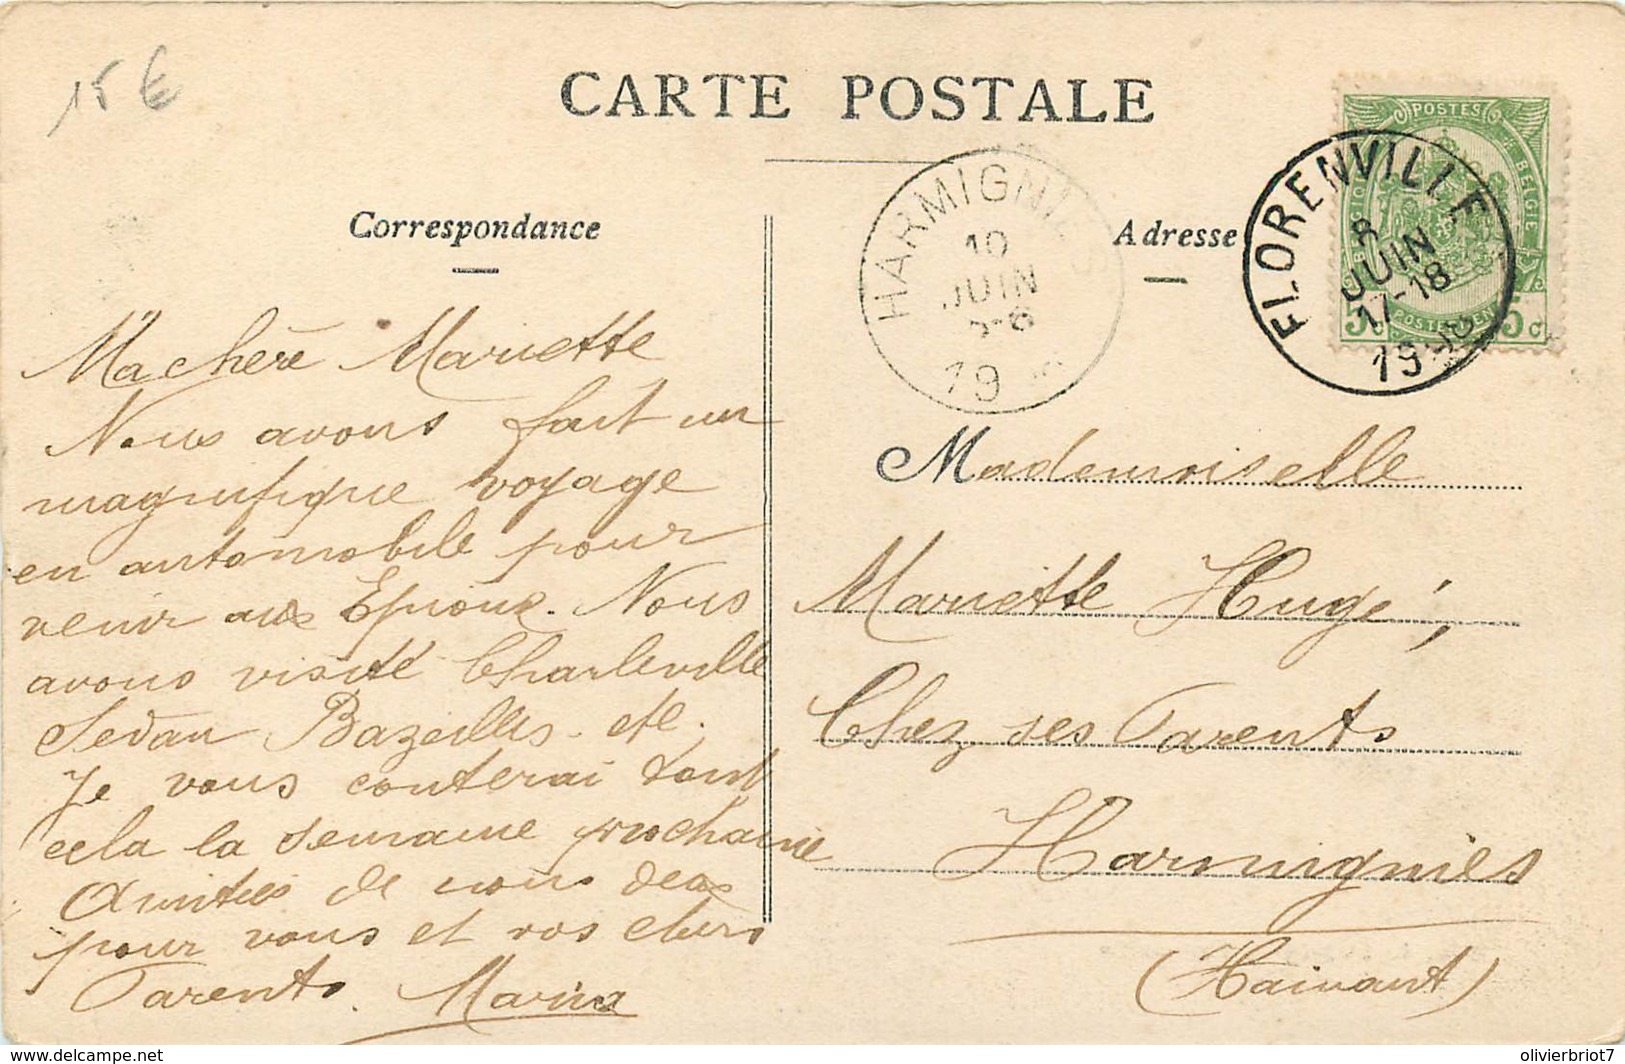 15 €
CARTE POSTALE
Correspondance
Adresse
POSTES
BELGIQUE
DE BELGIE
POSTERIJEN
5c 5c
FLORENVILLE
8
JUIN
17-18
19
HARMIGNIES
10
JUIN
-6
19
Ma chère Mariette
Nous avons fait un
magnifique voyage
en automobile pour
venir aux Epioux. Nous
avons visité Charleville
Sedan Bazeilles etc.
Je vous conterai tout
cela la semaine prochaine
Amitiés de nous deux
pour vous et vos chers
Parents. Maria
Mademoiselle
Mariette Hugé,
Chez ses Parents
Harmignies
(Hainaut)
www.delcampe.net
olivierbriot7